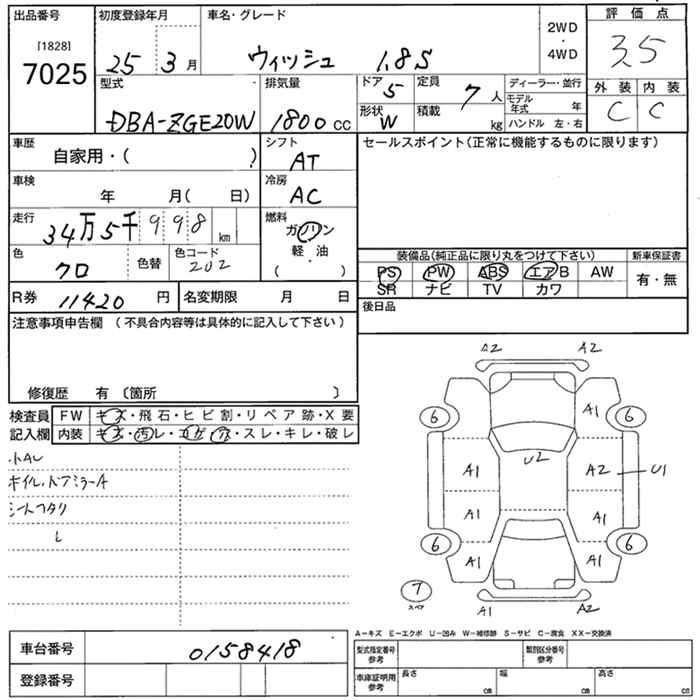 出品番号 初度登録年月 車名・グレード 2WD・4WD 評価点
[1828]
7025 25 3月 ウィッシュ 1.8S 3.5
型式 排気量 ドア 5 定員 7人 ディーラー・並行 外装 内装
DBA-ZGE20W 1800cc 形状 W 積載 kg モデル年式 年 C C
ハンドル 左・右
車歴 シフト セールスポイント(正常に機能するものに限ります)
自家用・( ) AT
車検 冷房
年 月( 日) AC
走行 34万5千998km 燃料
ガソリン
軽・油
( )
色 クロ 色替 色コード 202
装備品(純正品に限り丸をつけて下さい) 新車保証書
PS PW ABS エアB AW 有・無
SR ナビ TV カワ
R券 11420円 名変期限 月 日
後日品
注意事項申告欄 (不具合内容等は具体的に記入して下さい)
修復歴 有 〔箇所 〕
検査員 FW キズ・飛石・ヒビ割・リペア跡・X要
記入欄 内装 キズ・汚レ・コゲ・穴・スレ・キレ・破レ
A2 A2
6 A1 6
U2
A1 A2 U1
A1 A1
6 6
A1 A1
7
スペア
A1 A2
A-キズ E-エクボ U-凹み W-補修跡 S-サビ C-腐食 XX-交換済
車台番号 0158418
型式指定番号 参考 類別区分番号 参考
登録番号
車庫証明用 参考 長さ cm 幅 cm 高さ cm